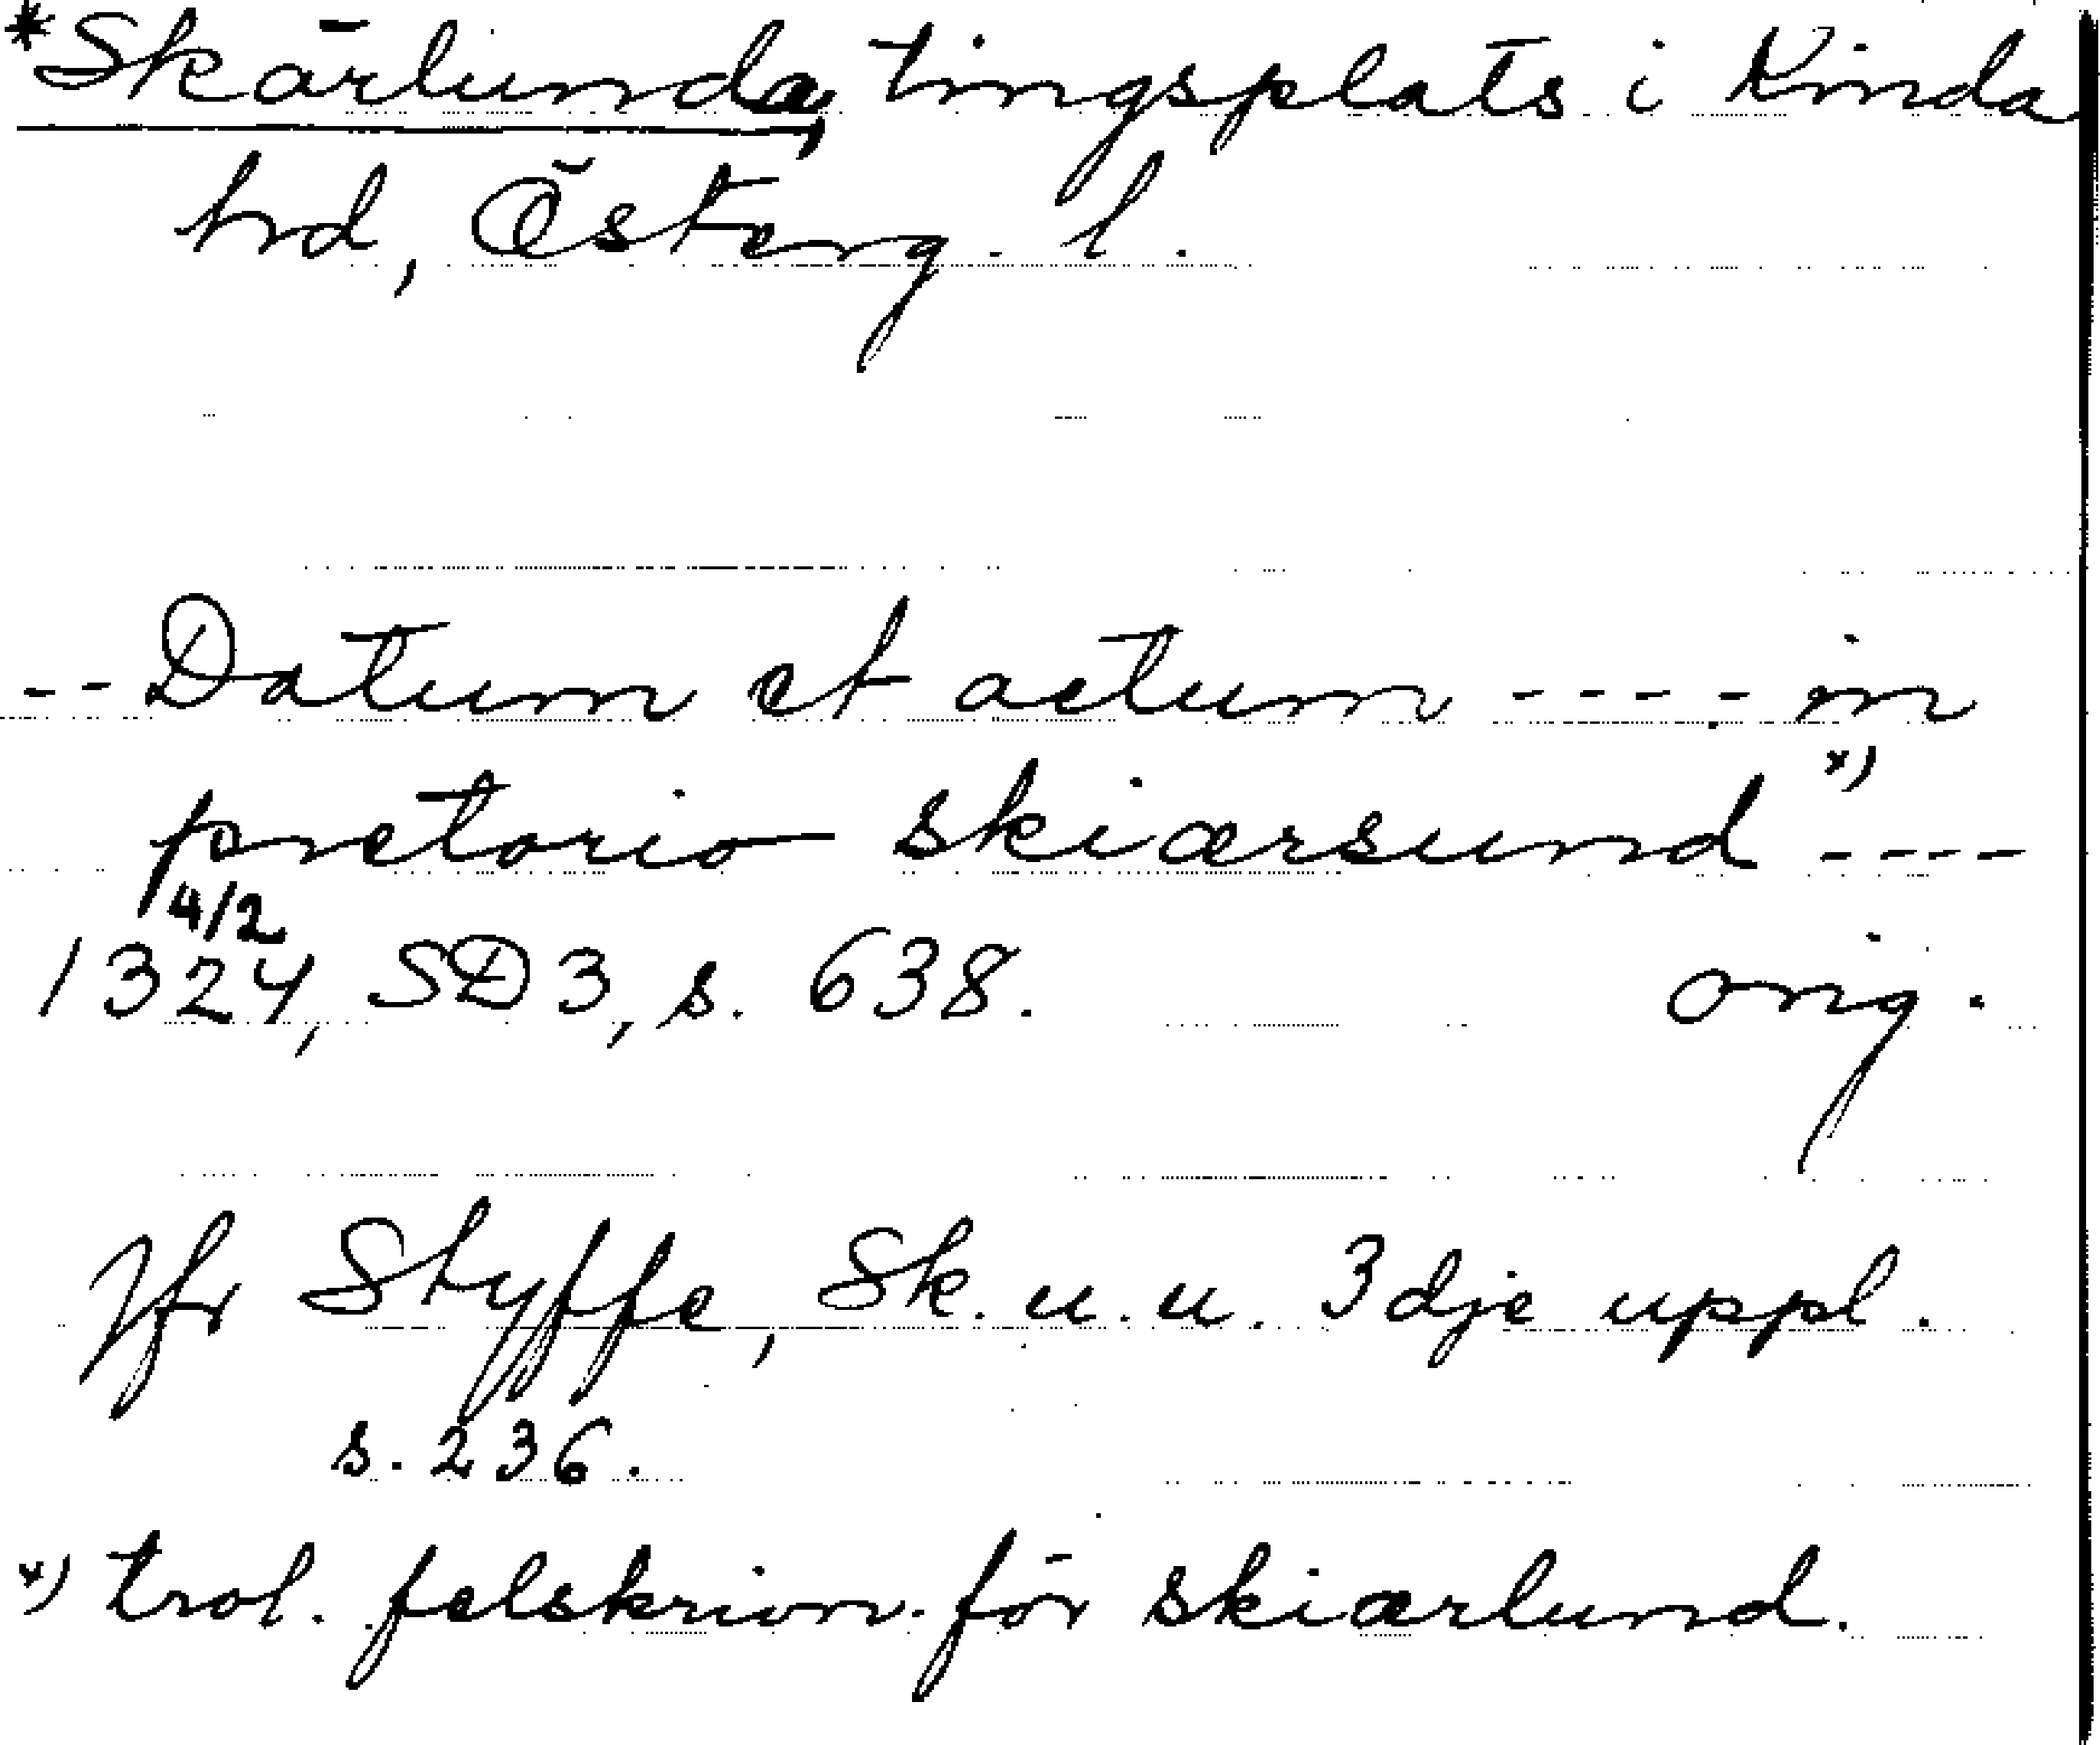 *Skärlunda, tingsplats i Kinda
hrd, Österg. l.
-- Datum et actum ---- in
pretorio skiærsund *) ----
4/2
1324, SD3, s. 638. orig.
Jfr Styffe, Sk. u. u. 3dje uppl.
s. 236.
*) trol. felskrivn. för skiærlund.